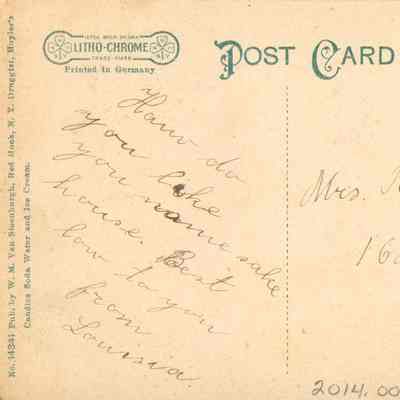 LITHO-CHROME
TRADE-MARK
Printed in Germany
POST CARD
Haw do
you like
you name sake
house. Best
low to you
from
Louisia.
Mrs.
16
No. 14341 Pub. by W. M. Van Steenburgh, Red Hook, N. Y. Druggist, Huyler's
Candies Soda Water and Ice Cream.
2014.00